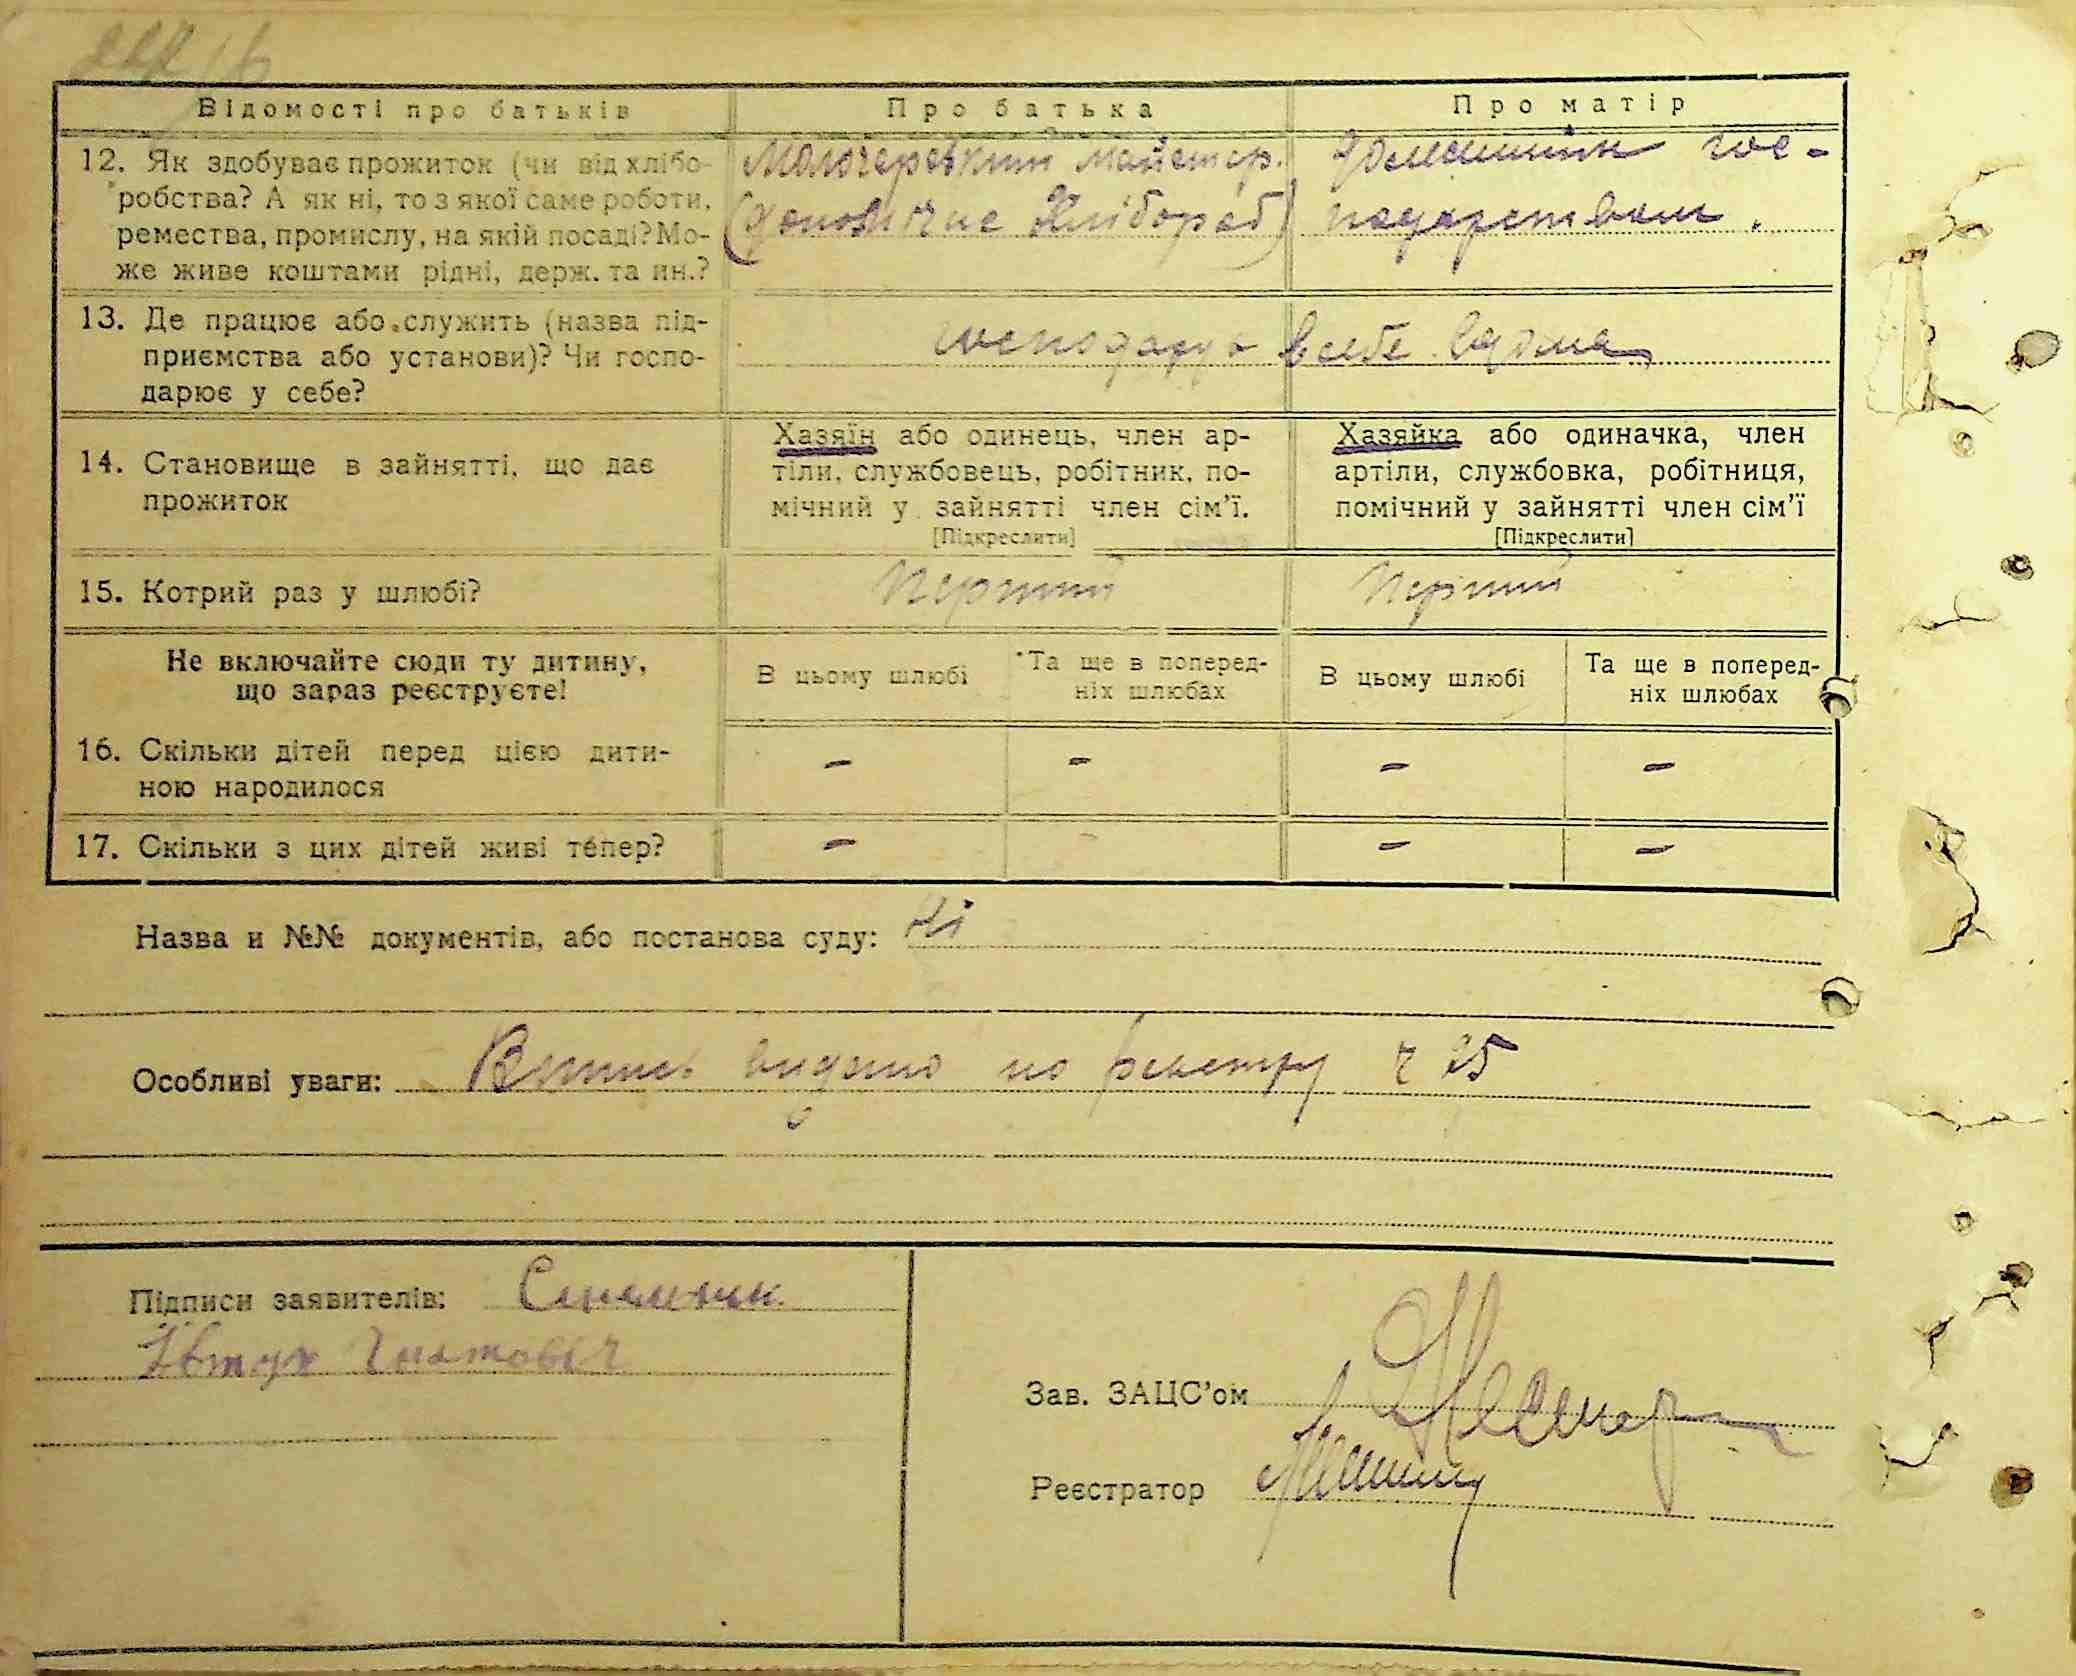 Відомості про батьків
Про батька
Про матір
12. Як здобуває прожиток (чи від хлібо-
робства? А як ні, то з якої саме роботи,
ремества, промислу, на якій посаді? Мо-
же живе коштами рідні, держ. та ин.?
майстер.
Хлібороб)
Домашнім гос-
подарством.
13. Де працює або служить (назва під-
приємства або установи)? Чи госпо-
дарює у себе?
господарує в себе вдома
14. Становище в зайнятті, що дає
прожиток
Хазяїн або одинець, член ар-
тіли, службовець, робітник, по-
мічний у зайнятті член сім'ї.
[Підкреслити]
Хазяйка або одиначка, член
артіли, службовка, робітниця,
помічний у зайнятті член сім'ї
[Підкреслити]
15. Котрий раз у шлюбі?
Перший
Перший
Не включайте сюди ту дитину,
що зараз реєструєте!
В цьому шлюбі
Та ще в поперед-
ніх шлюбах
В цьому шлюбі
Та ще в поперед-
ніх шлюбах
16. Скільки дітей перед цією дити-
ною народилося
-
-
-
-
17. Скільки з цих дітей живі тепер?
-
-
-
Назва и №№ документів, або постанова суду: Ні
Особливі уваги: видано по реєстру ч 25
Підписи заявителів:
Гнатович
Зав. ЗАЦС'ом
Реєстратор